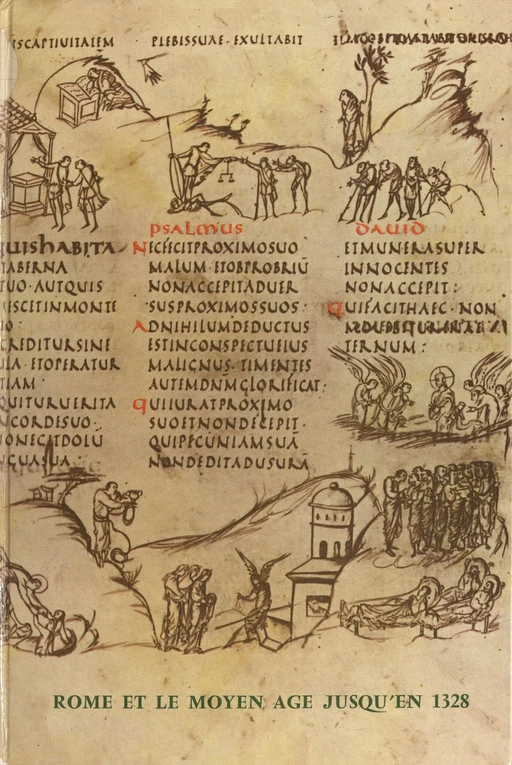 ISCAPTIUITATEM PLEBISSUAE · EXULTABIT
UISHABITA
TABERNA
TUO · AUTQUIS
USCETINMONTE
CREDITURSINE
ULA · ETOPERATUR
TIAM :
QUITURUERITA
CORDESUO ·
ONECITDOLŪ
GUASUA :
PSALMUS
NECFECITPROXIMOSUO
MALUM · ETOBPROBRIŪ
NONACCEPITADUER
SUSPROXIMOSSUOS :
ADNIHILUMDEDUCTUS
ESTINCONSPECTUEIUS
MALIGNUS · TIMENTES
AUTEMDNMGLORIFICAT :
QUIIURATPROXIMO
SUOETNONDECEPIT ·
QUIPECUNIAMSUĀ
NONDEDITADUSURĀ
DAUID
ETMUNERASUPER
INNOCENTES
NONACCEPIT :
QUIFACITHAEC · NON
TERNUM :
ROME ET LE MOYEN AGE JUSQU'EN 1328